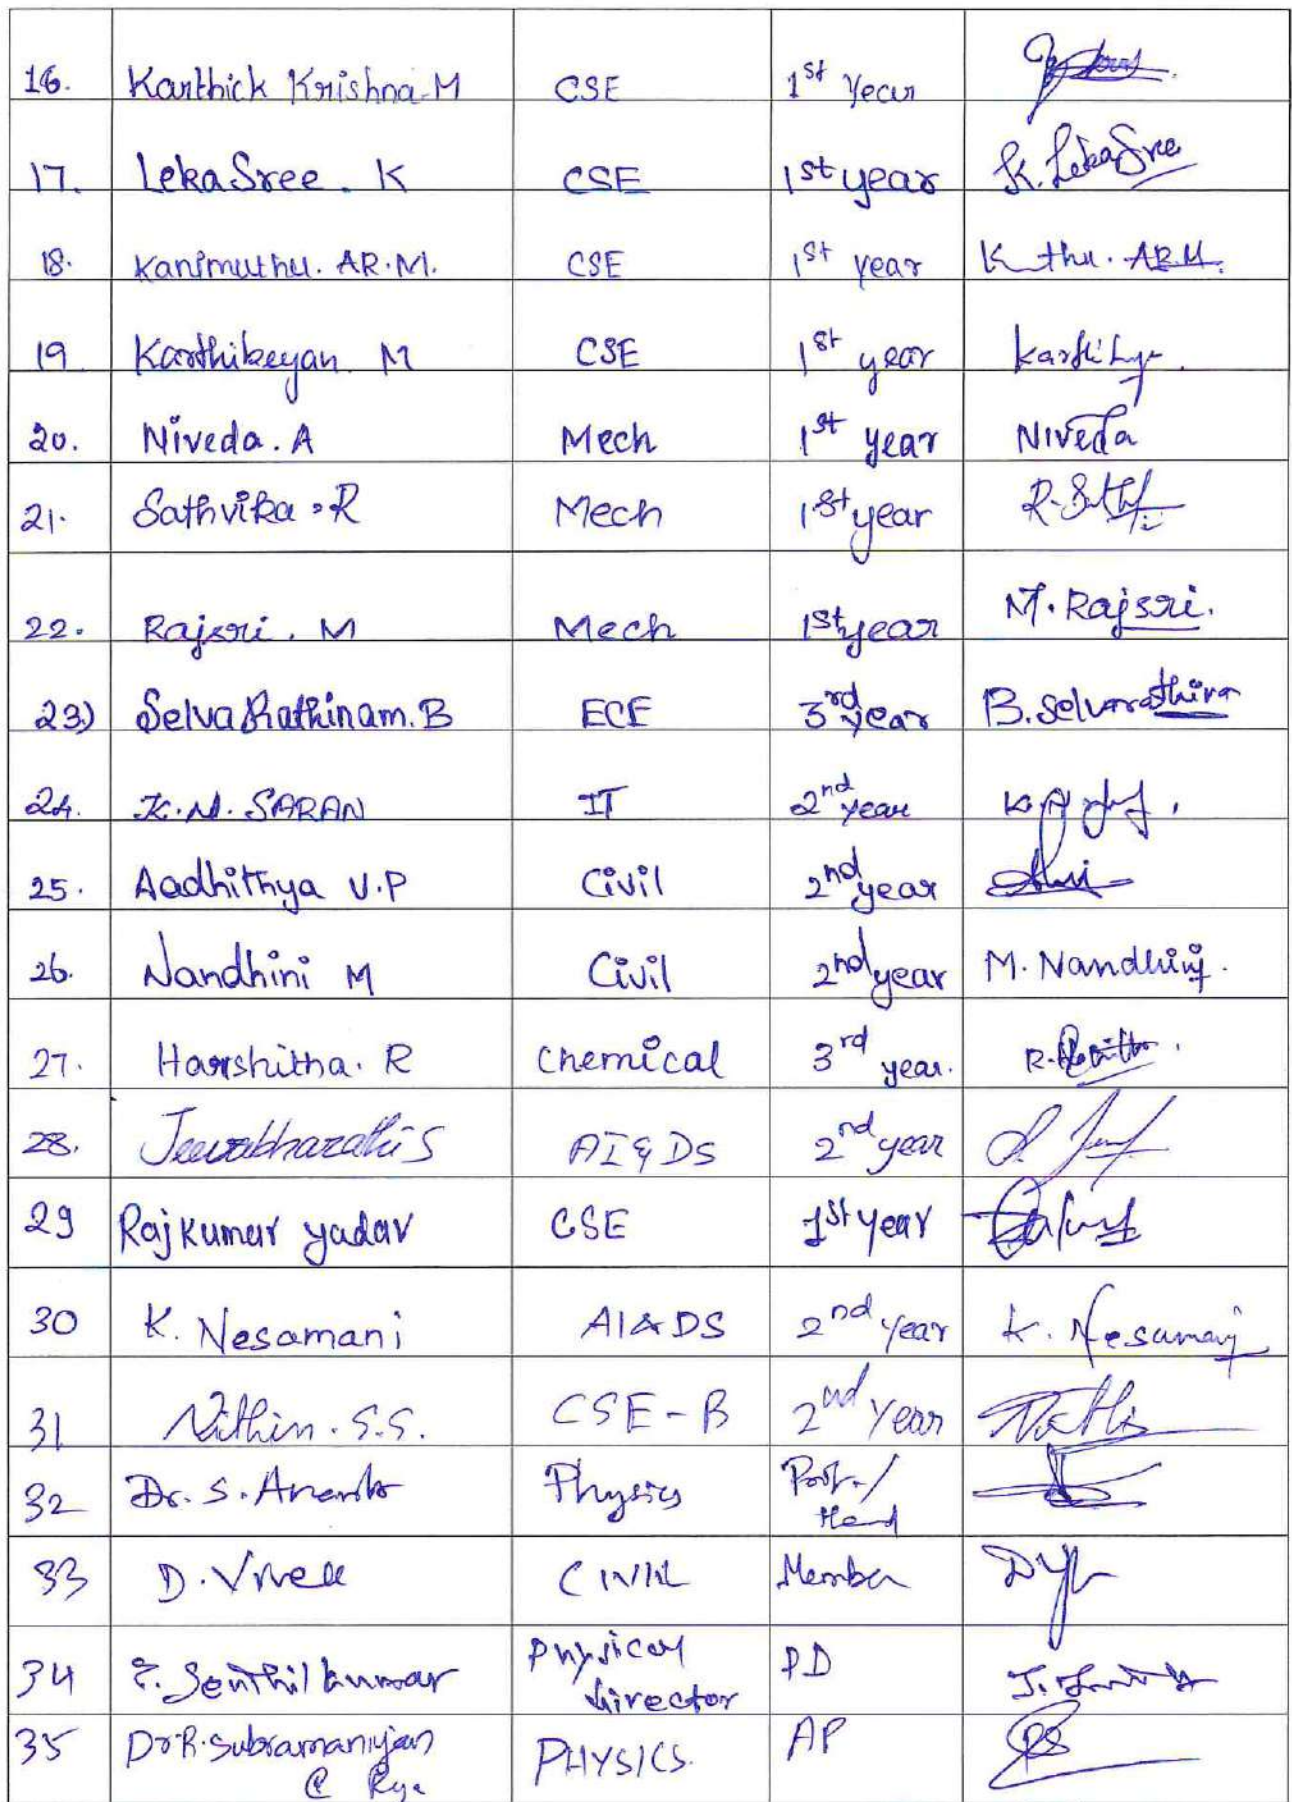 16. Karthick Krishna M CSE 1st Year
17. LekaSree. K CSE 1st year K. LekaSree
18. Kanimuthu. AR.M. CSE 1st year K thu. AR.M.
19 Karthikeyan M CSE 1st year
20. Niveda. A Mech 1st year Niveda
21. Sathvika. R Mech 1st year
22. Rajsri. M Mech 1st year M. Rajsri.
23) Selva Rathinam. B ECE 3rd year
24. K. N. SARAN IT 2nd year
25. Aadhithya V.P Civil 2nd year
26. Nandhini M Civil 2nd year M. Nandhini.
27. Harshitha. R Chemical 3rd year.
28. Jeevabharathi S AI & DS 2nd year
29 Raj Kumar yadav CSE 1st year
30 K. Nesamani AI & DS 2nd year K. Nesamani
31 Nithin. S.S. CSE-B 2nd Year
32 Dr. S. Physics Prof./
Head
33 D. Vivek CIVIL Member
34 Senthil kumar Physical PD
director
35 Dr R. Subramaniyan PHYSICS. AP
@